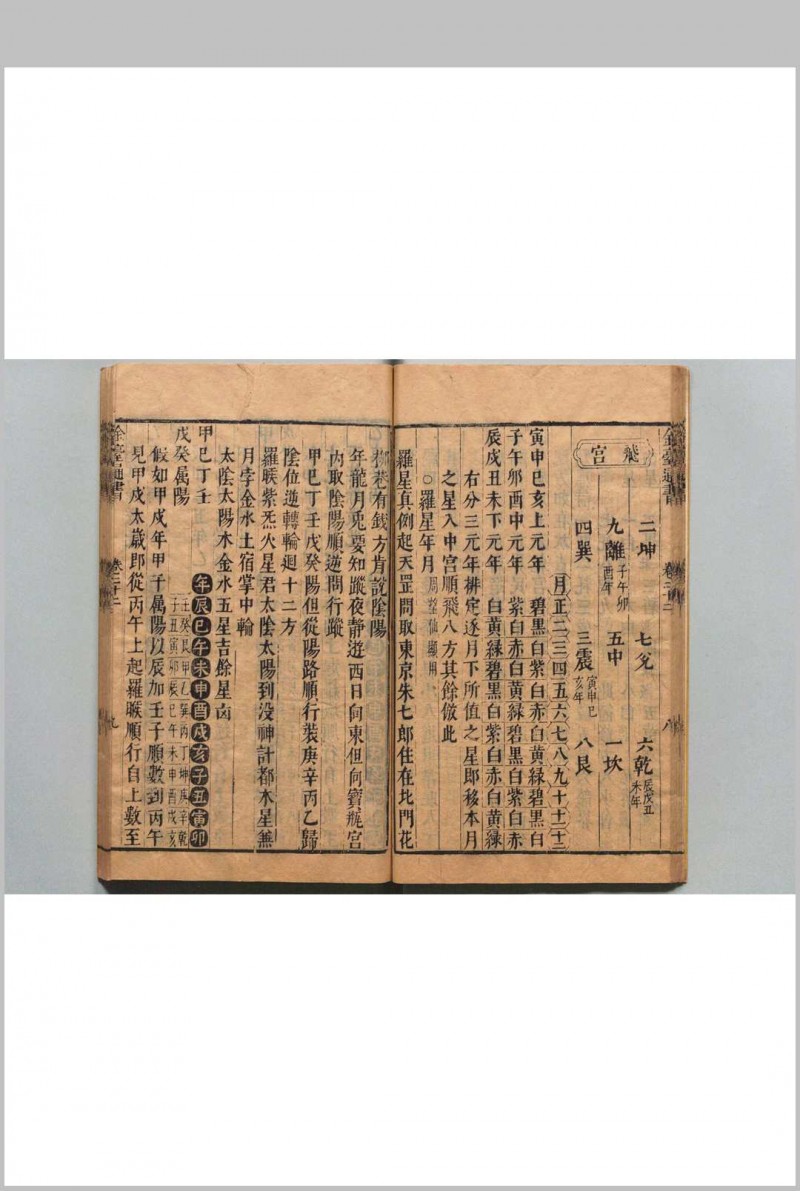 金臺通書 卷三十二 八
二坤 七兌 六乾 辰戌丑未年
九離 子午卯酉年 五中 一坎
四巽 三震 寅申巳亥年 八艮
飛宮
月 正 二 三 四 五 六 七 八 九 十 十一 十二
寅申巳亥上元年 碧黑白紫白赤白黄緑碧黑白
子午卯酉中元年 紫白赤白黄緑碧黑白紫白赤
辰戌丑未下元年 白黄緑碧黑白紫白赤白黄緑
右分三元年排定逐月下所值之星即移本月
之星入中宮順飛八方其餘倣此
○羅星年月
羅星真倒起天罡問取東京朱七郎住在比門花
柳巷有錢方肯說陰陽
年龍月兎要知蹤夜靜遊西日向東但向寳瓶宮
内取陰陽順逆問行蹤
甲巳丁壬戊癸陽但從陽路順行裝庚辛丙乙歸
陰位逆轉輪廻十二方
羅㬋紫炁火星君太陰太陽到没神計都木星無
月孛金水土宿掌中輪
太陰太陽木金水五星吉餘星凶
甲巳丁壬 午辰巳午未申酉戌亥子丑寅卯
戊癸属陽 壬癸艮甲乙巽丙丁坤庚辛乾
子丑寅卯辰巳午未申酉戌亥
假如甲戌年甲子属陽以辰加壬子順數到丙午
見甲戌太歲即從丙午上起羅㬋順行自上數至
金臺通書 卷三十二 九